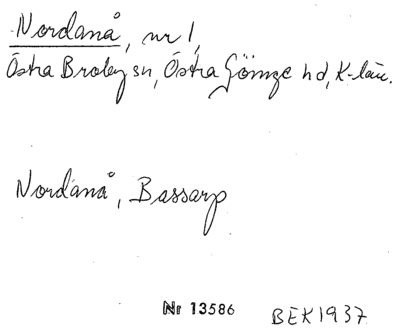 Nordanå, nr 1,
Östra Broby sn, Östra Göinge hd, K-län.
Nordanå, Bassarp
Nr 13586 BEK 1937